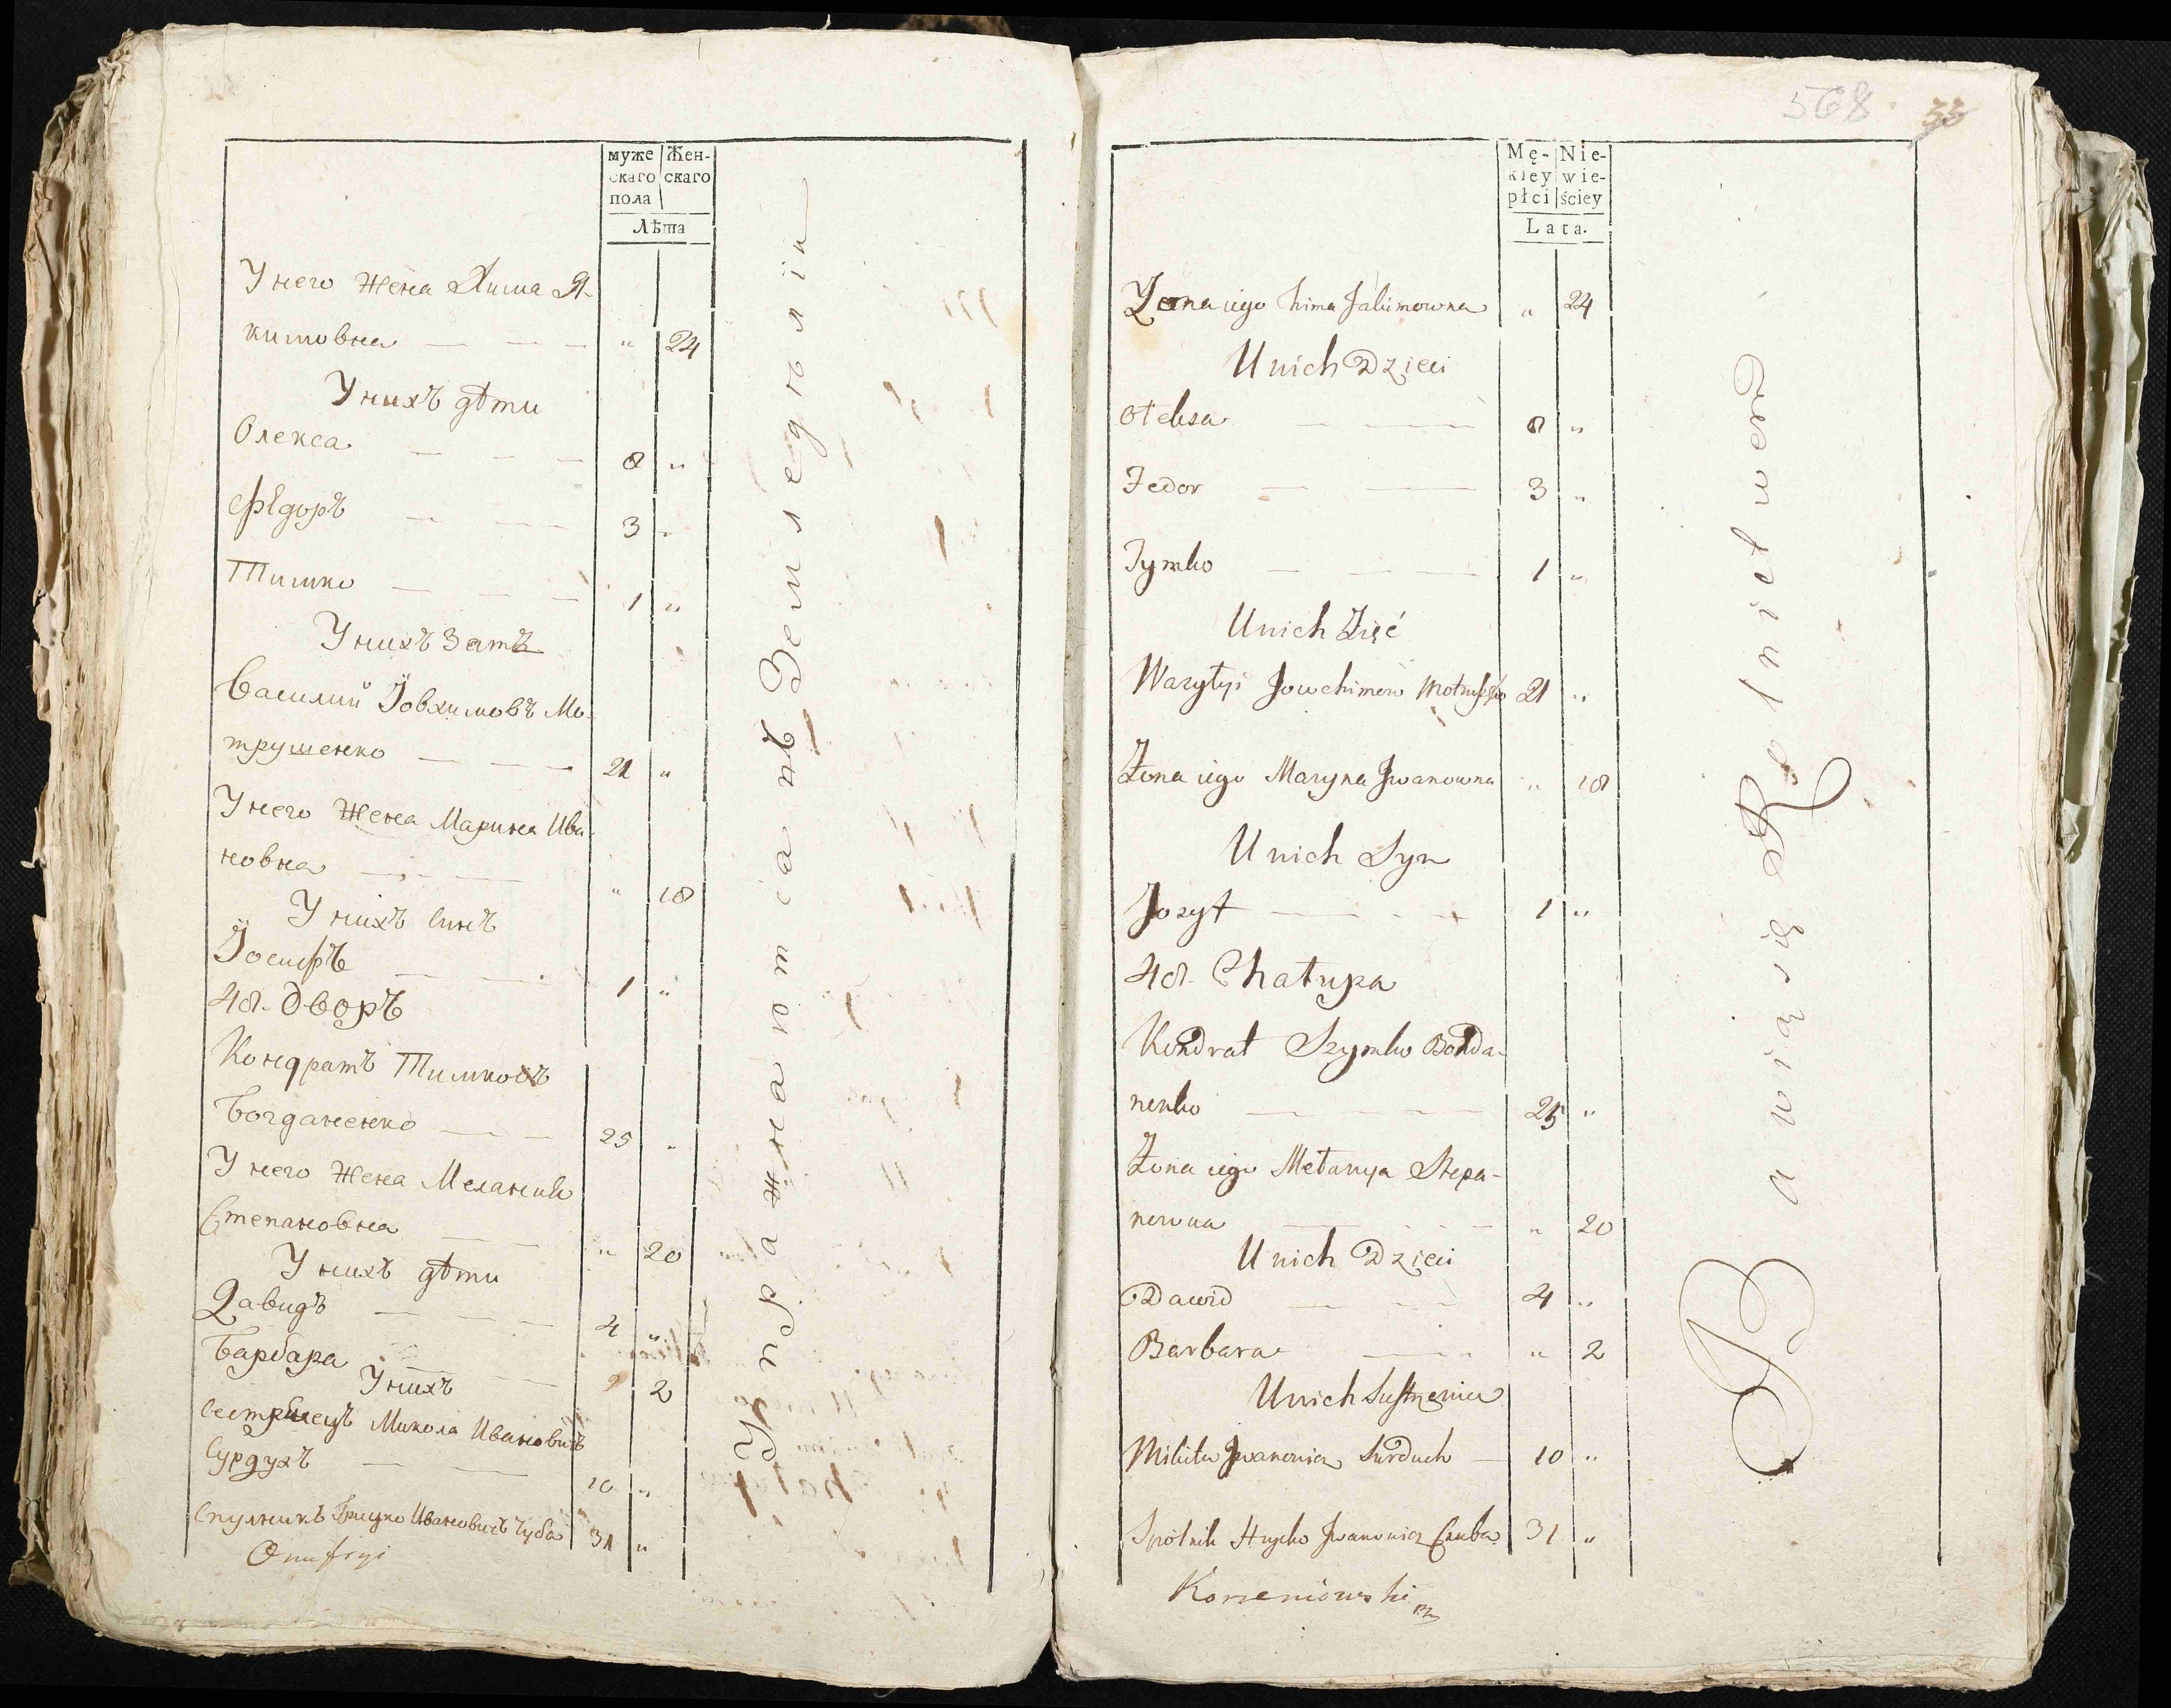 муже Жен-
скаго скаго
пола
Лѣта
У него жена Хима Я-
кимовна — — — " 24
У нихъ дѣти
Олекса — — — 8 "
Федоръ — — — 3 "
Тимко — — — 1 "
У нихъ Зать
Василий Їовхимовъ Мо-
трушенко — — — 21 "
У него Жена Марина Ива
новна — — " 18
У нихъ Синъ
Їосифъ — — 1 "
48. Дворъ
Кондратъ Тимковъ
Богданенко — — 25 "
У него Жена Мелания
Степановна — — " 20
У нихъ дѣти
Давидъ — — — 4 "
Барбара — — 2
У нихъ
Сестринецъ Микола Ивановичъ
Сурдухъ — — 10 "
Спулникъ Грицко Ивановичъ Чуба 31 "
Onufryi
Упражнаютсіа въ Земледѣлїи
568 33
Mę- Nie-
kiey wie-
płci ściey
Lata.
Zona iego Hima Jakimowna " 24
U nich Dzieci
Oleksa — — 8 "
Fedor — — 3 "
Tymko — — — 1 "
U nich Zięć
Wasylyi Jowchimow Motruszko 21 "
Żona iego Maryna Jwanowna " 18
U nich Syn
Jozyf — — — 1 "
48. Chałupa
Kondrat Szymko Bohda-
nenko — — — 25 "
Żona iego Mełanya Stepa-
nowna — — — " 20
U nich Dzieci
Dawid — — — 4 "
Barbara — — " 2
U nich Sustrzeniec
Mikita Jwanowicz Surduch — 10 "
Spólnik Hrycko Jwanowicz Czuba 31 "
Korzeniowski
Bawią się Rolnictwem